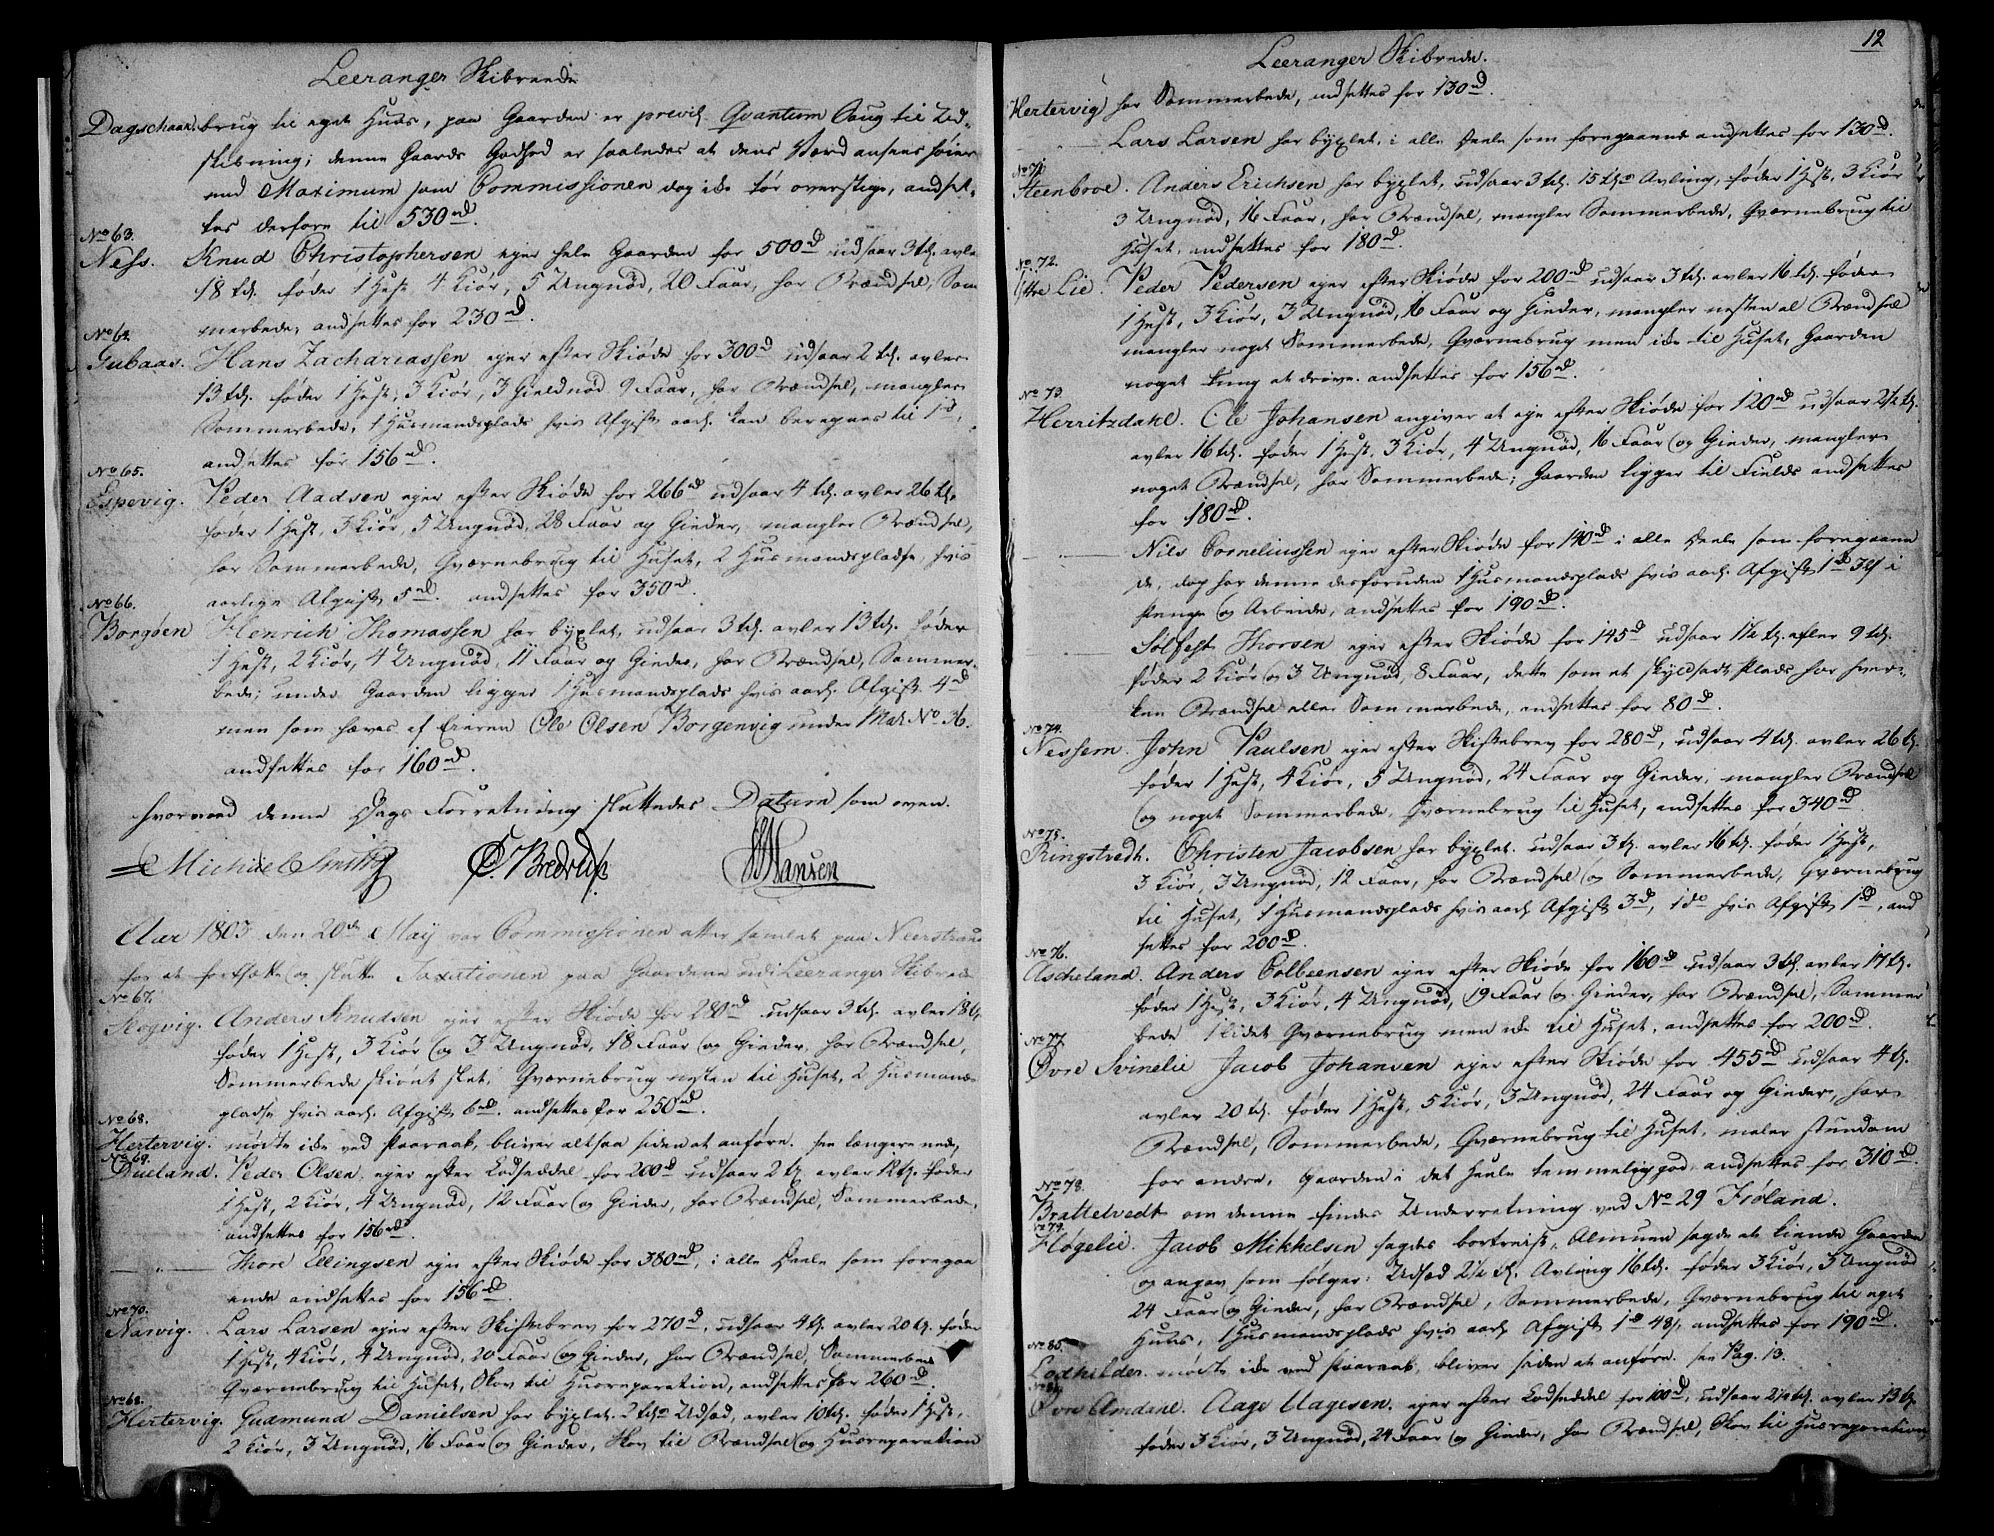 Leeranger Skibreede
Dagschaar. brug til eget Huus, paa Gaarden er previl. Qvantum Saug til Ud-
skibning; denne Gaards Godhed er saaledes at dens Værd ansees høiere
end Maximum som Commissionen dog ikke tør overstige, andsæt-
tes derfore til 530rd.
No 63.
Ness. Knud Christophersen ejer hele Gaarden for 500rd udsaar 3 td. avler
18 td. føder 1 Hest 4 Kiør, 5 Ungnød, 20 Faar, har Brændsel, Som
merbede, andsettes for 230rd.
No 64.
Gubaas. Hans Zachariassen ejer efter Skiøde for 300rd udsaar 2 td. avler
13 td. føder 1 Hest, 3 Kiør, 3 Gieldnød 9 Faar, har Brændsel, mangler
Sommerbede, 1 Husmandsplads hvis Afgift aarl. kan beregnes til 1rd,
andsettes for 156rd.
No 65.
Espevig. Peder Aadsen ejer efter Skiøde for 266rd udsaar 4 td. avler 26 td.
føder 1 Hest, 3 Kiør, 5 Ungnød, 28 Faar og Gieder, mangler Brændsel,
har Sommerbede, Qværnebrug til Huset, 2 Husmandspladse hvis
aarlige Afgift 5rd. andsettes for 350rd.
No 66.
Borgøen Henrich Thomassen har byxlet, udsaar 3 td. avler 13 td. føder
1 Hest, 2 Kiør, 4 Ungnød, 11 Faar og Gieder, har Brændsel, Sommer-
bede; under Gaarden ligger 1 Husmandsplads hvis aarl. Afgift 4rd
men som hæves af Eieren Ole Olsen Borgenvig under Matr No 36.
andsettes for 160rd.
hvorved denne Dags Forretning sluttedes Datum som oven.
Michael Smith Bredrup Hansen
Aar 1803 den 20de Maij var Commissionen atter samlet paa Neerstrand
for at fortsætte og slutte Taxationen paa Gaardene udi Leeranger Skibrede
No 67.
Skogvig. Anders Knudsen ejer efter Skiøde for 280rd udsaar 3 td. avler 18 td.
føder 1 Hest, 3 Kiør og 3 Ungnød, 18 Faar og Gieder, har Brændsel,
Sommerbede skiønt slet, Qværnebrug nesten til Huset, 2 Husmands-
pladse hvis aarl. Afgift 6rd. andsettes for 250rd.
No 68.
Hertervig. mødte ikke ved Paaraab, bliver altsaa siden at anføre. see længere ned,
No 69.
Dueland. Peder Olsen ejer efter Lodseddel for 200rd udsaar 2 td. avler 12 td. føder
1 Hest, 2 Kiør, 4 Ungnød, 12 Faar og Gieder, har Brændsel, Sommerbede,
andsettes for 156rd.
— " — Thore Ellingsen ejer efter Skiøde for 380rd, i alle Deele som foregaa
ende andsettes for 156rd.
No 70.
Narvig. Lars Larsen ejer efter Skiftebrev for 270rd, udsaar 4 td. avler 20 td. føder
1 Hest, 4 Kiør, 4 Ungnød, 20 Faar og Gieder, har Brændsel, Sommerbede
Qværnebrug til Huset, Skov til Huusreparation, andsettes for 260rd.
No 68.
Hertervig. Gudmund Danielsen har byxlet. 2 tdr Udsæd, avler 10 td. føder 1 Hest,
2 Kiør, 3 Ungnød, 16 Faar og Gieder, Skov til Brændsel og Huusreparation
12
Leeranger Skibrede.
Hertervig har Sommerbede, andsettes for 130rd.
Lars Larsen har byxlet, i alle Deele som foregaaende andsettes for 130rd.
No 71.
Steenboe. Anders Erichsen har byxlet, udsaar 3 td. 15 tdr Avling, føder 1 Hest, 3 Kiør
3 Ungnød, 16 Faar, har Brændsel, mangler Sommerbede, Qværnebrug til
Huset, andsettes for 180rd.
No 72.
Yttre Lie. Peder Pedersen ejer efter Skiøde for 200rd udsaar 3 td. avler 16 td. føder
1 Hest, 3 Kiør, 3 Ungnød, 16 Faar og Gieder, mangler nesten al Brændsel
mangler noget Sommerbede, Qværnebrug men ikke til Huset, Gaarden
noget tung at drive. andsettes for 156rd.
No 73.
Herritzdahl. Ole Johansen angiver at eje efter Skiøde for 120rd udsaar 2½ td.
avler 16 td. føder 1 Hest, 3 Kiør, 4 Ungnød, 16 Faar og Gieder, mangler
noget Brændsel, har Sommerbede; Gaarden ligger til Fields andsettes
for 180rd.
Nils Corneliussen ejer efter Skiøde for 140rd i alle Deele som foregaaen
de, dog har denne desforuden 1 Husmandsplads hvis aarl. Afgift 1rd 32s i
Penge og Arbeide, andsettes for 190rd.
Solfest Thorsen ejer efter Skiøde for 145rd udsaar 1½ td. avler 9 td.
føder 2 Kiør og 3 Ungnød, 8 Faar, dette som et skyldsadt Plads har hver-
ken Brændsel eller Sommerbede, andsettes for 80rd.
No 74.
Nessem. John Paulsen ejer efter Skiftebrev for 280rd, udsaar 4 td. avler 26 td.
føder 1 Hest, 4 Kiør, 5 Ungnød, 24 Faar og Gieder, mangler Brændsel
og noget Sommerbede, Qværnebrug til Huset, andsettes for 340rd
No 75.
Ringstvedt. Christen Jacobsen har byxlet. udsaar 3 td. avler 16 td. føder 1 Hest,
3 Kiør, 3 Ungnød, 12 Faar, har Brændsel og Sommerbede, Qværnebrug
til Huset, 1 Husmandsplads hvis aarl. Afgift 3rd, 1 do hvis Afgift 1rd, and
settes for 200rd.
No 76.
Ascheland. Anders Colbeensen ejer efter Skiøde for 160rd udsaar 3 td. avler 17 td.
føder 1 Hest, 3 Kiør, 4 Ungnød, 19 Faar og Gieder, har Brændsel, Sommer
bede 1 lidet Qværnebrug men ikke til Huset, andsettes for 200rd.
No 77.
Øvre Svinelie Jacob Johansen ejer efter Skiøde for 455rd udsaar 4 td.
avler 20 td. føder 1 Hest, 5 Kiør, 3 Ungnød, 24 Faar og Gieder, har
Brændsel, Sommerbede, Qværnebrug til Huset, maler stundom
for andre, Gaarden i det Heele temmelig god, andsettes for 310rd.
No 78.
Brattetvedt om denne findes Underretning ved No 29 Frøland.
No 79.
Høgelie. Jacob Mikkelsen sagdes bortreist, Almuen sagde at kiende Gaarden
og angav som følger: Udsæd 2½ td. Avling 16 td. føder 3 Kiør, 3 Ungnød
24 Faar og Gieder, har Brændsel, Sommerbede, Qværnebrug til eget
Huus, 1 Husmandsplads hvis aarl. Afgift 1rd 48s, andsettes for 190rd.
No 85.
Lodhilder. mødte ikke ved Paaraab, bliver siden at anføre. see Pag. 13.
Øvre Amdahl. Aage Aagesen. ejer efter Lodseddel for 100rd, udsaar 2½ td. avler 13 td.
føder 3 Kiør, 3 Ungnød, 24 Faar og Gieder, har Brændsel, Skov til Huusreparation,